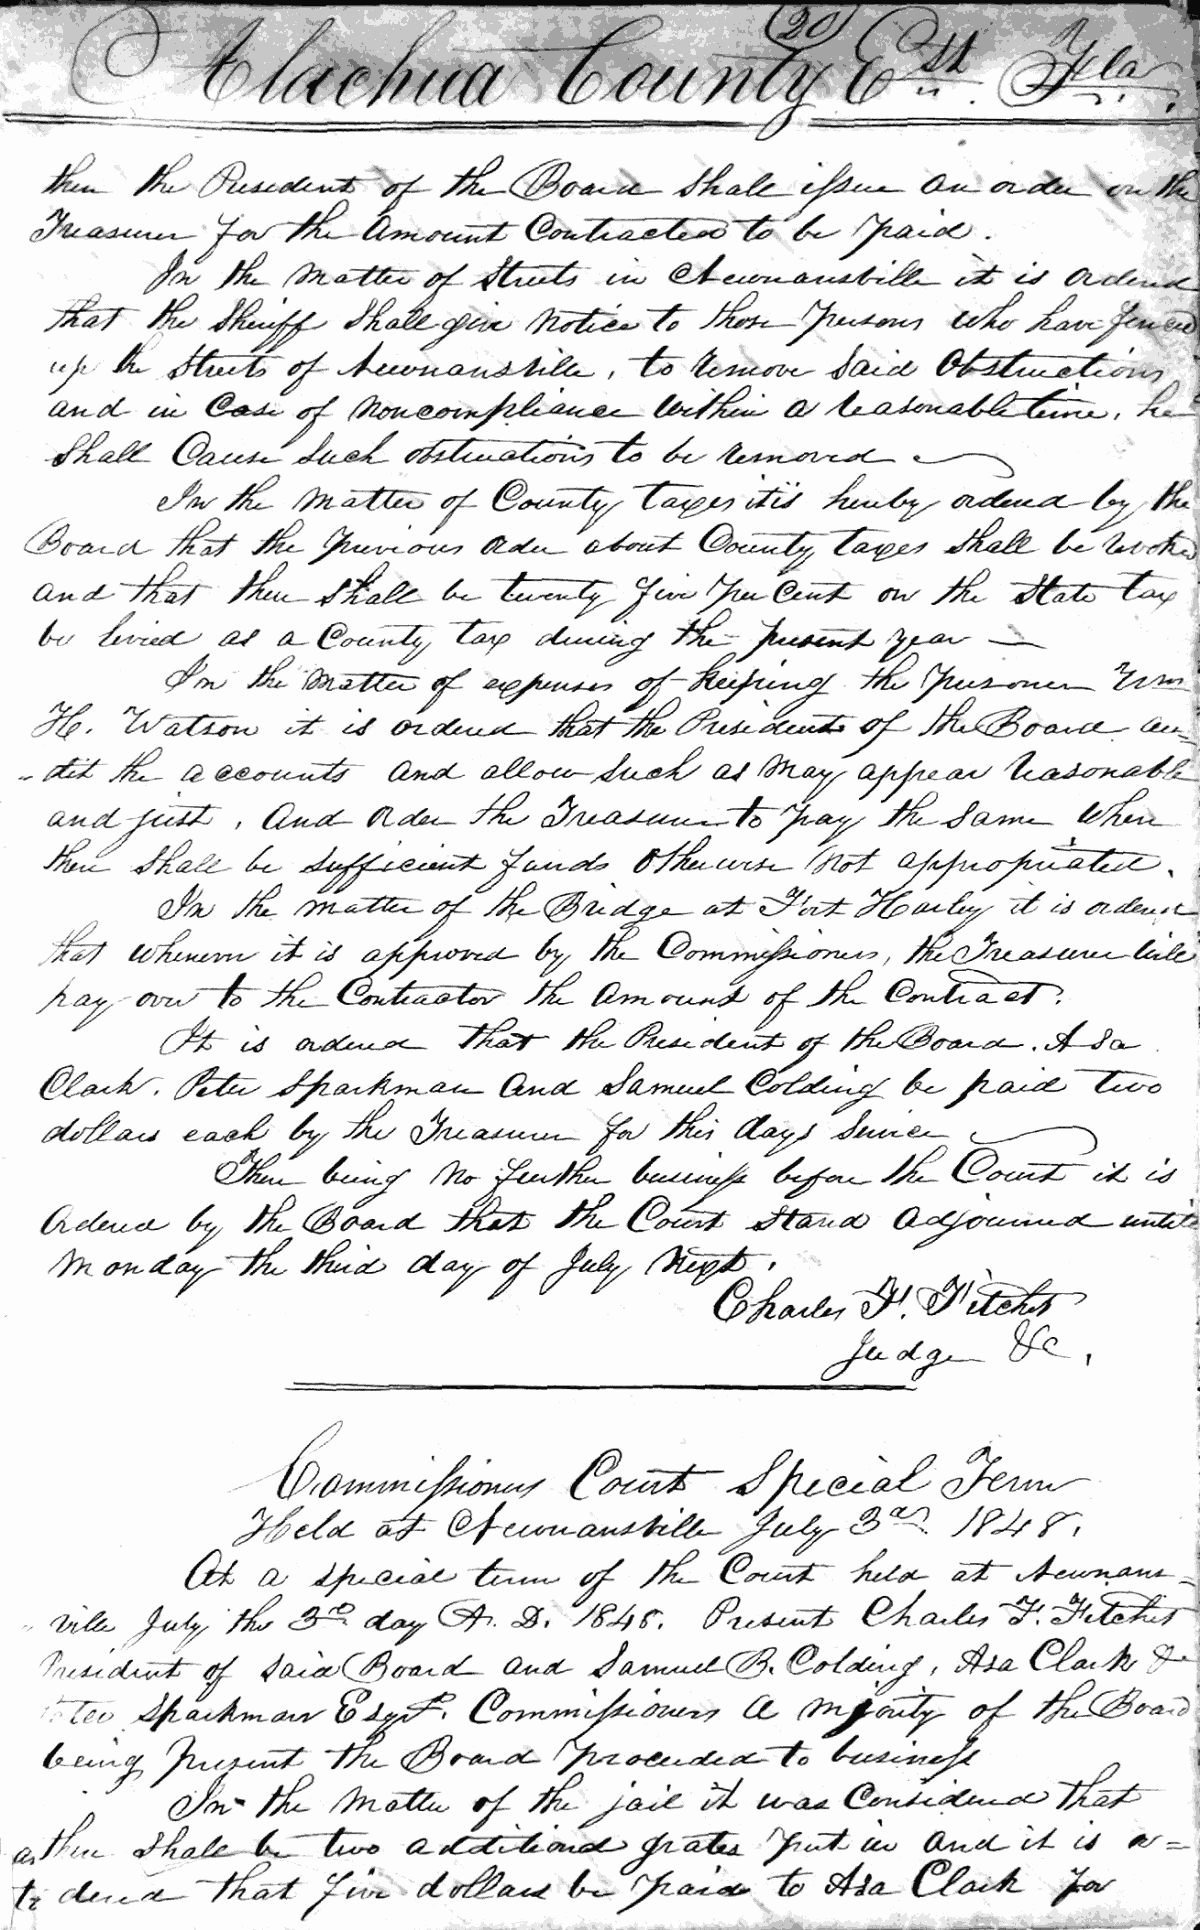 20
Alachua County Est. Fla.
then the President of the Board shall issue an order on the
Treasurer for the Amount Contracted to be paid.
In the Matter of Streets in Newnansville it is ordered
that the Sheriff Shall give Notice to those Persons who have fenced
up the Streets of Newnansville, to remove said Obstructions
and in Case of Noncompliance within a reasonable time, he
Shall Cause such obstructions to be removed
In the Matter of County taxes it is hereby ordered by the
Board that the previous order about County taxes shall be revoked
and that there shall be twenty five per Cent on the State tax
be levied as a County tax during the present year —
In the Matter of expenses of keeping the prisoner Wm
H. Watson it is ordered that the President of the Board au-
-dit the accounts and allow such as May appear reasonable
and just, and order the Treasurer to pay the same when
there shall be sufficient funds otherwise not appropriated.
In the matter of the Bridge at Fort Harley it is ordered
that whenever it is approved by the Commissioners, the Treasurer will
pay over to the Contractor the Amount of the Contract.
It is ordered that the President of the Board. Asa
Clark. Peter Sparkman and Samuel Colding be paid two
dollars each by the Treasurer for this days Service
There being no further business before the Court it is
Ordered by the Board that the Court Stand Adjourned until
Monday the third day of July Next.
Charles F. Fitchet
Judge &C.
Commissioners Court Special Term
Held at Newnansville July 3rd 1848.
At a special term of the Court held at Newnans-
-ville July the 3rd day A. D. 1848. Present Charles F. Fitchet
President of said Board and Samuel B. Colding, Asa Clark &
Peter Sparkman Esqrs. Commissioners a mjority of the Board
being present the Board proceeded to business
In the Matter of the jail it was Considered that
as there shall be two additional grates put in and it is or=
dered that five dollars be paid to Asa Clark for